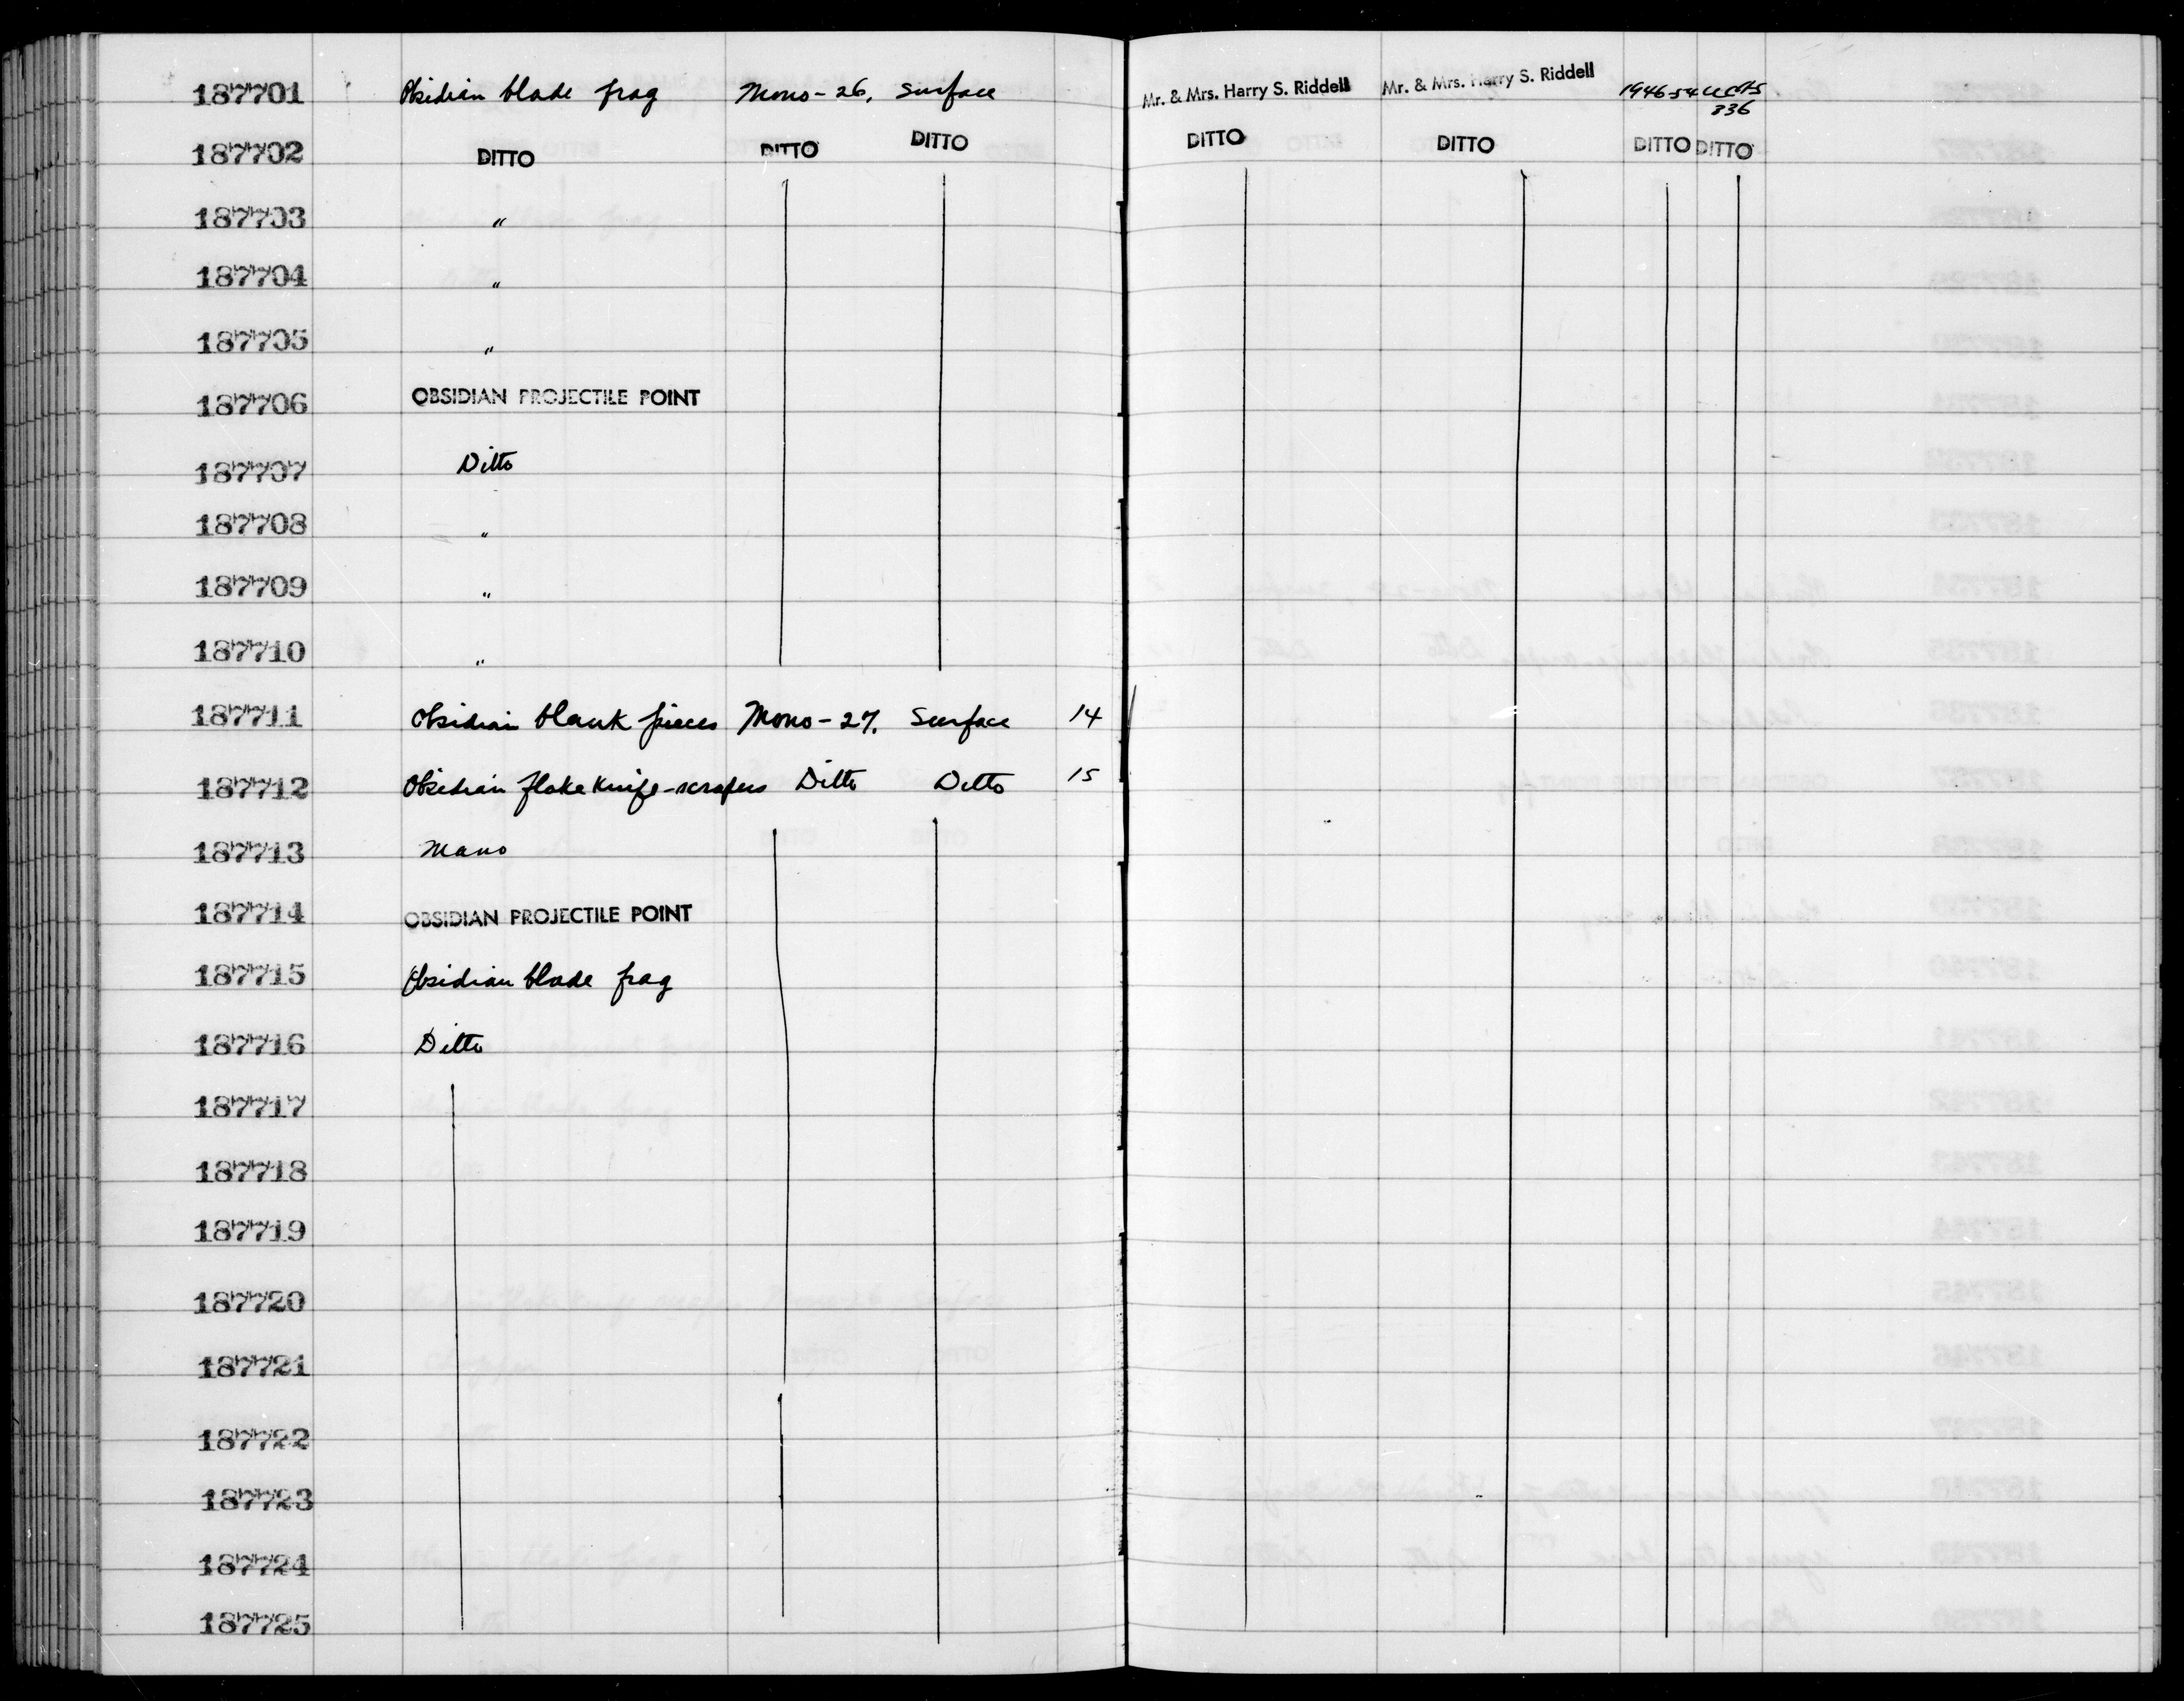 187701 Obsidian blade frag Mono-26. Surface Mr. & Mrs. Harry S. Riddell Mr. & Mrs. Harry S. Riddell 1946-54
336
187702 DITTO DITTO DITTO DITTO DITTO DITTO DITTO
187703 "
187704 "
187705 "
187706 OBSIDIAN PROJECTILE POINT
187707 Ditto
187708 "
187709 "
187710 "
187711 Obsidian blank pieces Mono-27. Surface 14
187712 Obsidian flake knife-scrapers Ditto Ditto 15
187713 Mano
187714 OBSIDIAN PROJECTILE POINT
187715 Obsidian blade frag
187716 Ditto
187717
187718
187719
187720
187721
187722
187723
187724
187725